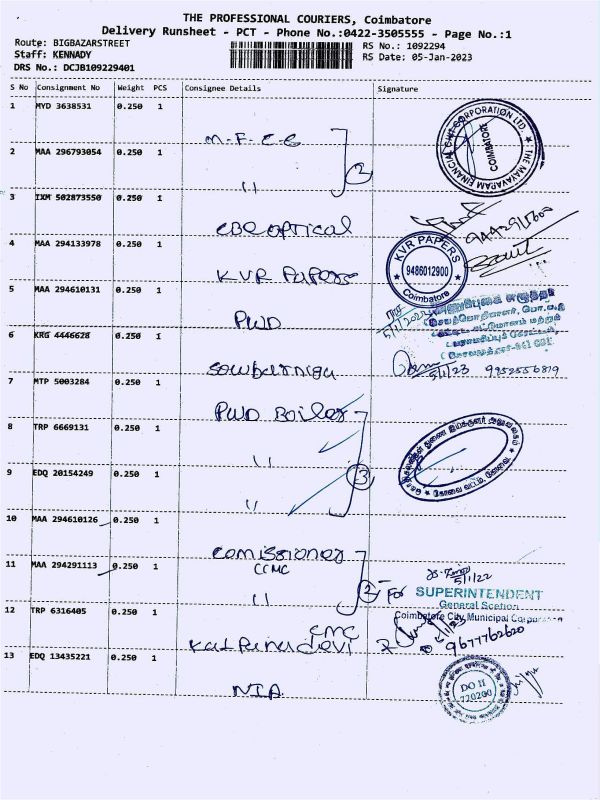 THE PROFESSIONAL COURIERS, Coimbatore
Delivery Runsheet - PCT - Phone No.:0422-3505555 - Page No.:1
Route: BIGBAZARSTREET
RS No.: 1092294
Staff: KENNADY
RS Date: 05-Jan-2023
DRS No.: DCJB109229401
S No Consignment No Weight PCS Consignee Details Signature
1 MYD 3638531 0.250 1
M.F.C.C
THE MAYAVARAM FINANCIAL CHIT CORPORATION LTD.
COIMBATORE
2 MAA 296793054 0.250 1
2
"
3 IXM 502873550 0.250 1
CBE OPTICAL
4 MAA 294133978 0.250 1
KVR PAPERS
KVR PAPERS
9486012900
Coimbatore
5 MAA 294610131 0.250 1
PWD
5/1/2022
6 KRG 4446628 0.250 1
5/1/23 9952556819
7 MTP 5003284 0.250 1
PWD Boiler
8 TRP 6669131 0.250 1
"
3
9 EDQ 20154249 0.250 1
"
10 MAA 294610126 0.250 1
Comissioner
CCMC
11 MAA 294291113 0.250 1
5/1/22
"
2
For
SUPERINTENDENT
General Section
Coimbatore City Municipal Corporation
12 TRP 6316405 0.250 1
CMC
9677762620
13 EDQ 13435221 0.250 1
NIA
DO II
720200